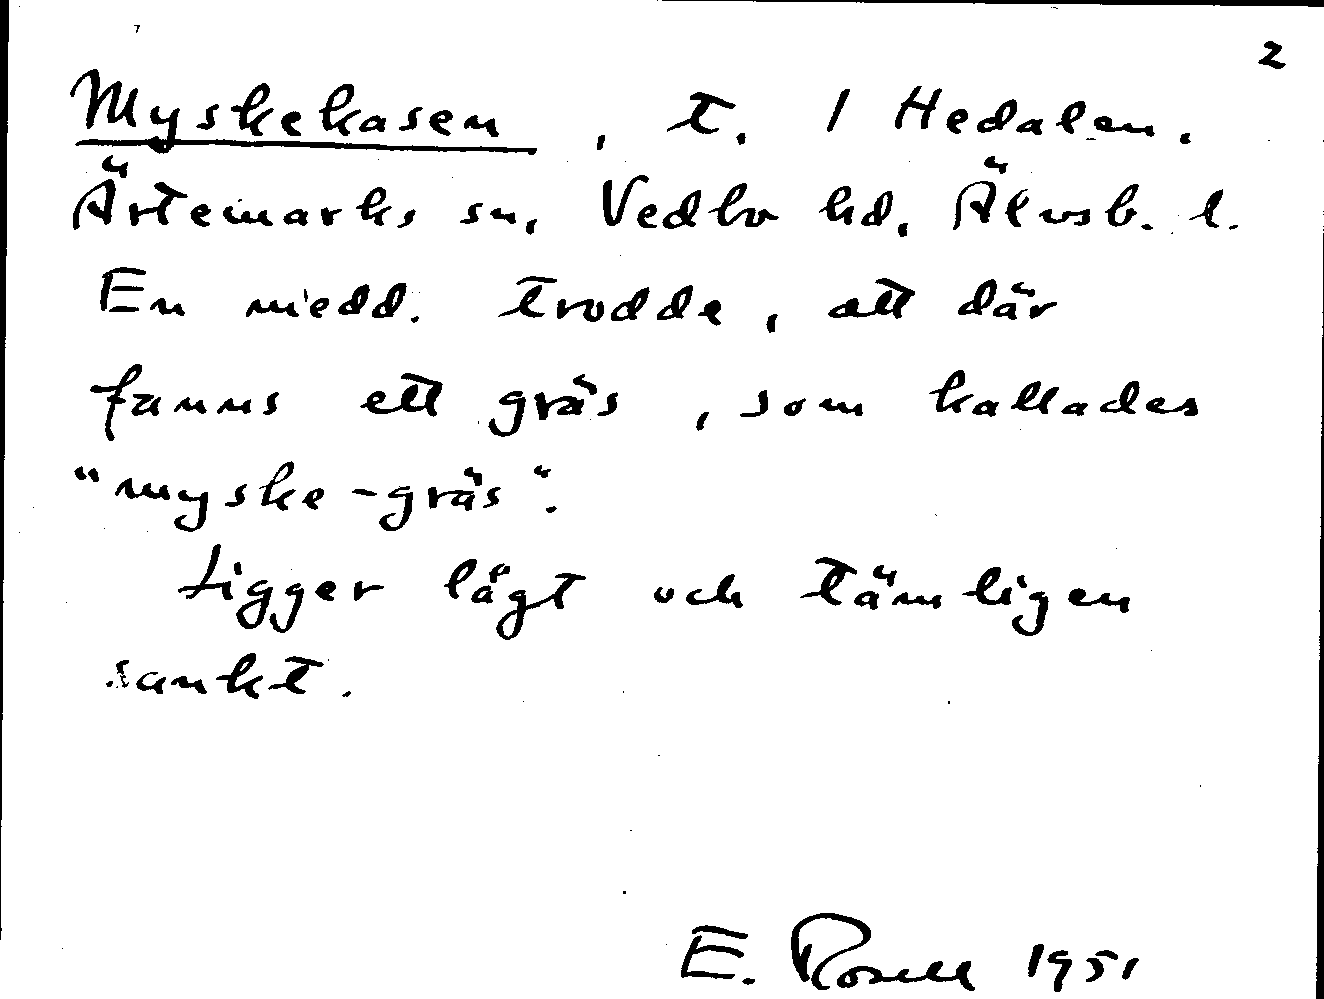 2
Myskekasen, t. 1 Hedalen.
Ärtemarks sn, Vedbo hd, Älvsb. l.
En medd. trodde, att där
fanns ett gräs, som kallades
"myske-gräs".
Ligger lågt och tämligen
sankt.
E. Rosell 1951